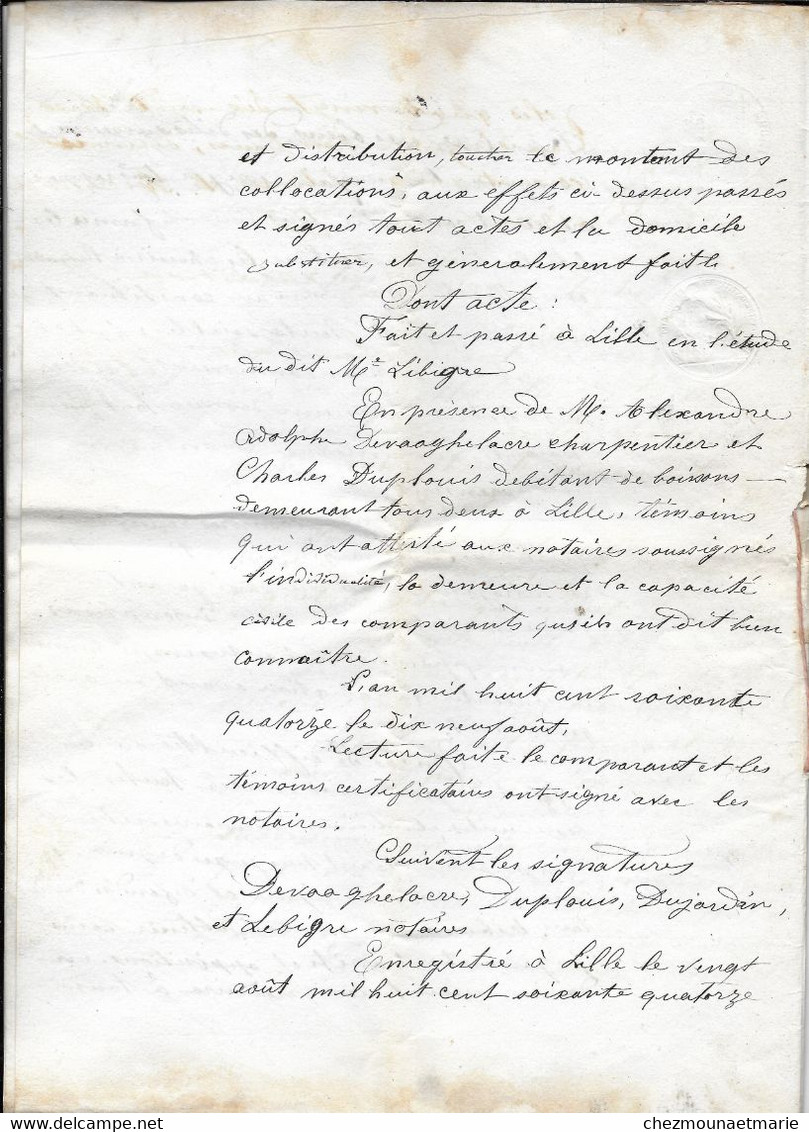 et distribution, toucher le montant des
collocations, aux effets ci-dessus passés
et signés tout actes et la domicile
substituer, et généralement faite
Dont acte :
Fait et passé à Lille en l'étude
du dit Me Libigre
En présence de M. Alexandre
Adolphe Devaaghelacre charpentier et
Charles Duplouis débitant de boissons —
demeurant tous deux à Lille, témoins
qui ont attesté aux notaires soussignés
l'individualité, la demeure et la capacité
civile des comparants qu'ils ont dit bien
connaître.
L'an mil huit cent soixante
quatorze le dix neuf août,
Lecture faite le comparant et les
témoins certificataires ont signé avec les
notaires.
Suivent les signatures
Devaaghelacre, Duplouis, Dujardin,
et Lebigre notaires
Enregistré à Lille le vingt
août mil huit cent soixante quatorze
chezmounaetmarie
Delcampe.net